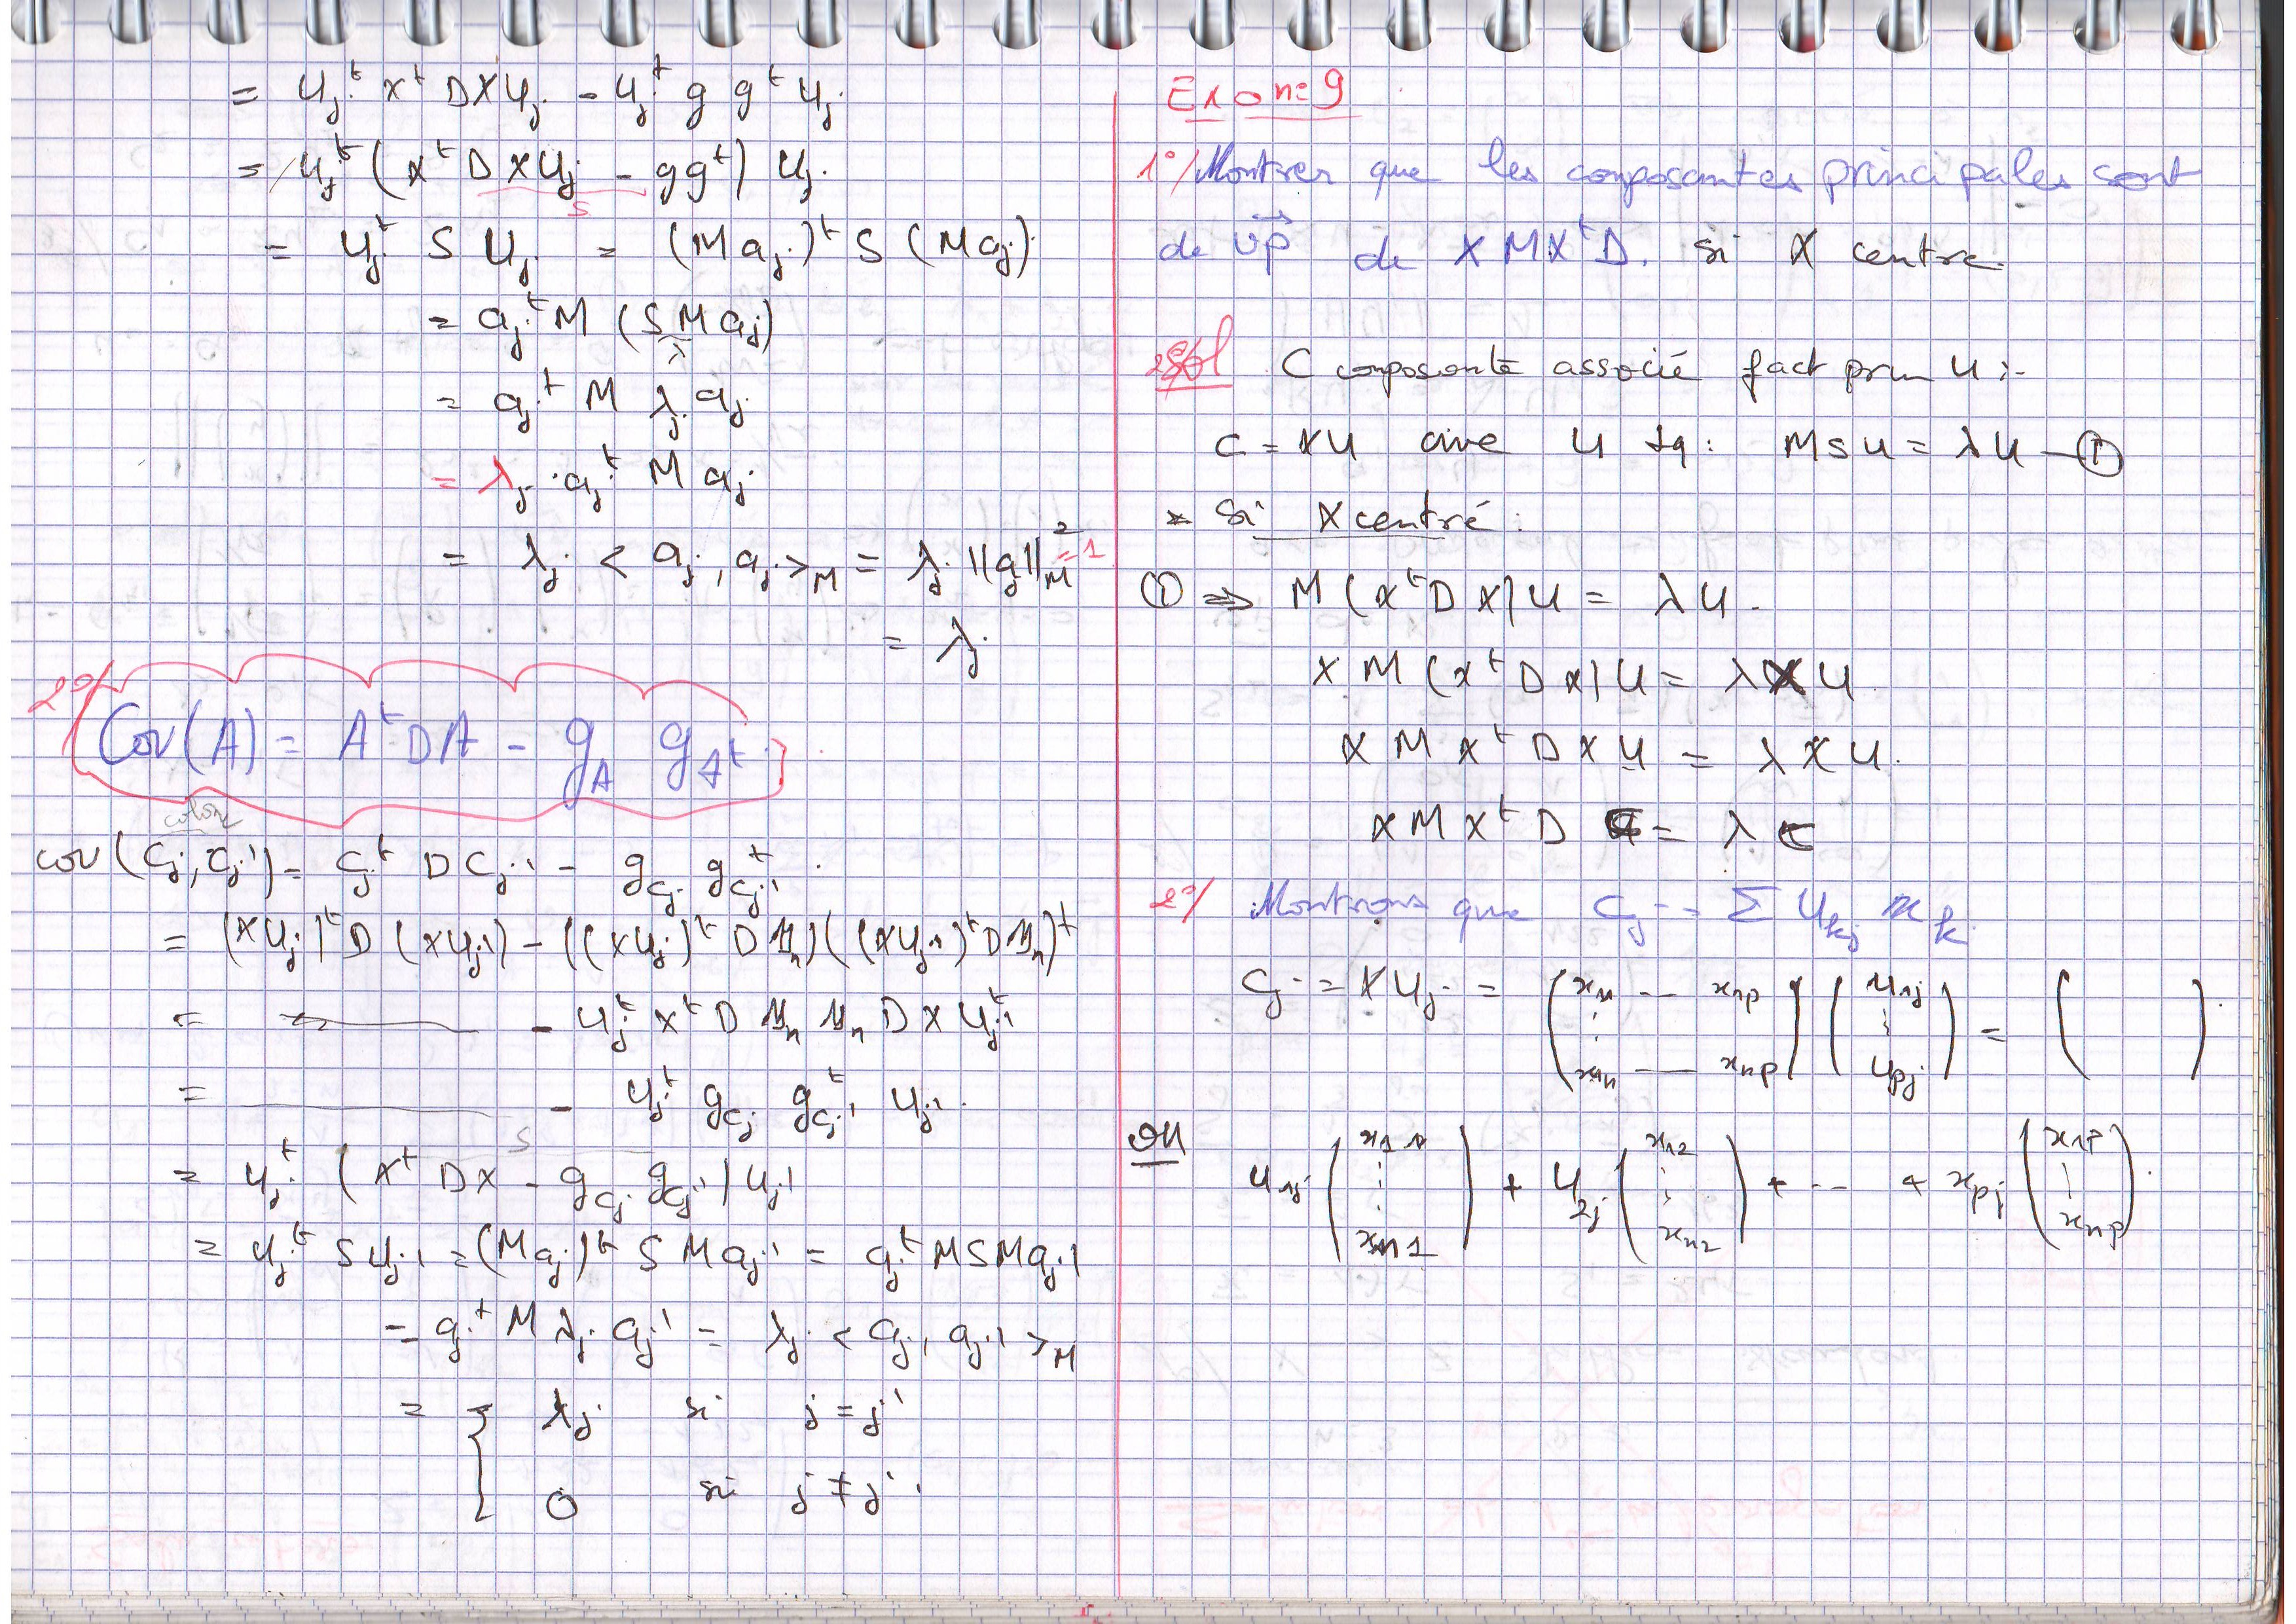 = Uj^t X^t D X Uj - Uj^t g g^t Uj
= Uj^t (X^t D X Uj - g g^t) Uj
S
= Uj^t S Uj = (M aj)^t S (M aj)
= aj^t M (S M aj)
λ
= aj^t M λj aj
= λj · aj^t M aj
= λj < aj , aj >M = λj ||aj||M^2 = 1
= λj
2°/ Cov(A) = A^t D A - gA gA^t
cov(Cj, Cj') = Cj^t D Cj' - gCj gCj'^t
= (X Uj)^t D (X Uj') - ((X Uj)^t D 1n)((X Uj')^t D 1n)^t
= — - Uj^t X^t D 1n 1n D X Uj'^t
= — - Uj^t gCj gCj'^t Uj'
S
= Uj^t (X^t D X - gCj gCj') Uj'
= Uj^t S Uj' = (M aj)^t S M aj' = aj^t M S M aj'
= aj^t M λj aj' = λj < aj , aj' >M
= { λj si j = j'
0 si j ≠ j'
Exo n=9
1°/ Montrer que les composantes principales sont
de vp de X M X^t D. si X centre.
Sol C composante associé fact prin U :-
C = X U ave U tq : M S U = λ U — ①
* Si X centré :
① => M (X^t D X) U = λ U .
X M (X^t D X) U = λ X U
X M X^t D X U = λ X U.
X M X^t D C = λ C
2°/ Montrons que Cj = Σ Ukj xk
Cj = X Uj = (x11 --- x1p ⋮ xn1 --- xnp) (u1j ⋮ upj) = ( ) .
ou u1j (x11 ⋮ xn1) + u2j (x12 ⋮ xn2) + --- + xpj (x1p ⋮ xnp) .